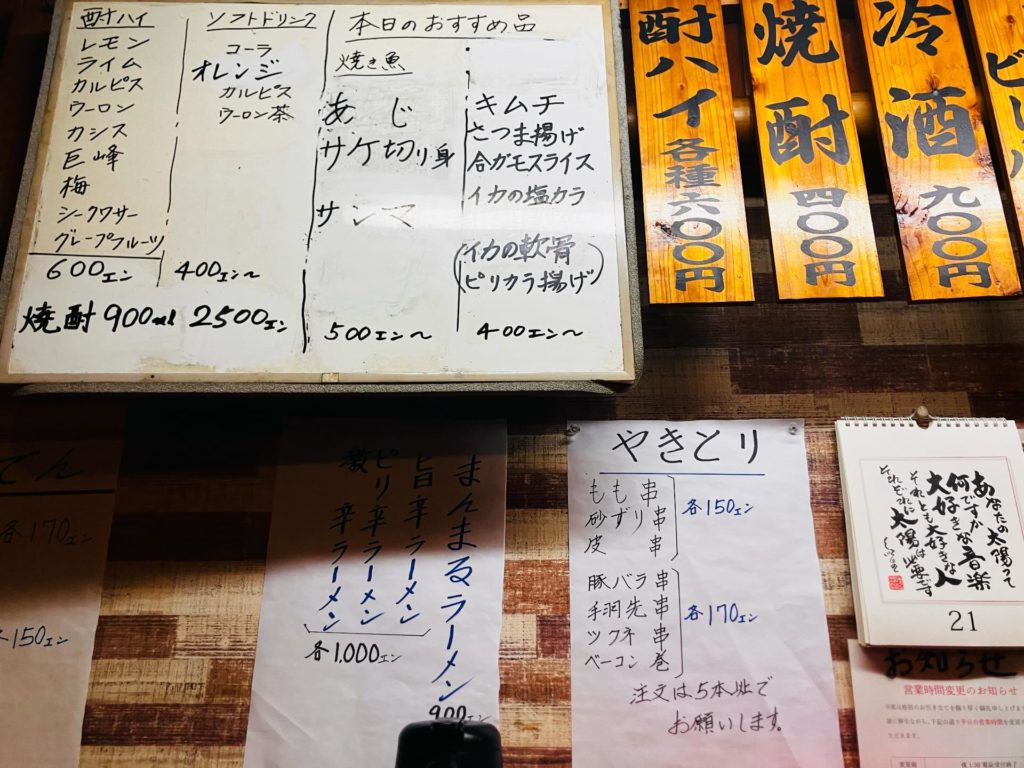 酎ハイ
レモン
ライム
カルピス
ウーロン
カシス
巨峰
梅
シークワサー
グレープフルーツ
600エン
ソフトドリンク
コーラ
オレンジ
カルピス
ウーロン茶
400エン〜
焼酎 900ml 2500エン
本日のおすすめ品
焼き魚
あじ
サケ切り身
サンマ
500エン〜
キムチ
さつま揚げ
合ガモスライス
イカの塩カラ
(イカの軟骨
ピリカラ揚げ)
400エン〜
酎ハイ各種六〇〇円
焼酎四〇〇円
冷酒九〇〇円
でん
各170エン
各150エン
まんまるラーメン
900エン
旨辛ラーメン
ピリ辛ラーメン
激辛ラーメン
各1,000エン
やきとり
もも串
砂ずり串
皮串
各150エン
豚バラ串
手羽先串
ツクネ串
ベーコン巻
各170エン
注文は5本以上で
お願いします。
あなたの太陽って
何ですか
大好きな音楽
それとも大好きな人
それぞれに太陽は必要です
21
お知らせ
営業時間変更のお知らせ